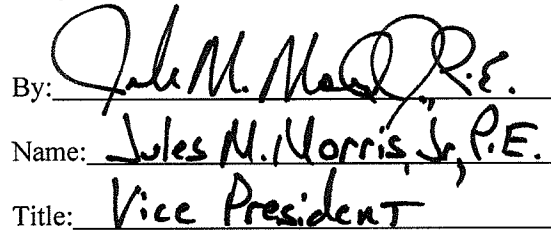 By: Jules M. Morris, Jr., P.E.
Name: Jules M. Morris, Jr., P.E.
Title: Vice President